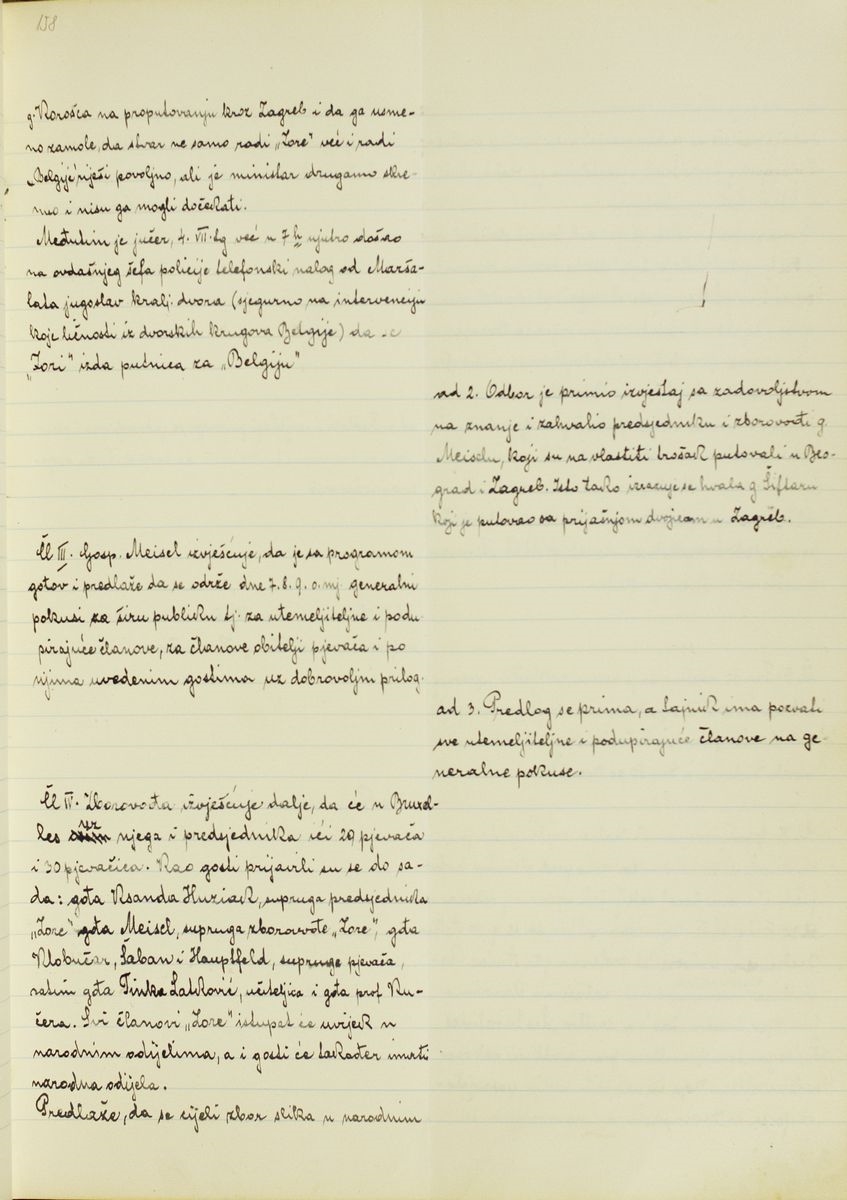 158
g. Korošca na proputovanju kroz Zagreb i da ga usme-
no zamole, da stvar ne samo radi „Zore" već i radi
„Belgije" riješi povoljno, ali je ministar drugamo skre-
nuo i nisu ga mogli dočekati.
Međutim je jučer, 4. VII. tg već u 7 h ujutro došao
na ovdašnjeg šefa policije telefonski nalog od Marša-
lata jugoslav kralj. dvora (sjegurno na intervenciju
koje ličnosti iz dvorskih krugova Belgije) da se
„Zori" izda putnica za „Belgiju"
Čl III. Gosp. Meisel izvješćuje, da je sa programom
gotov i predlaže da se održe dne 7. 8. 9. o. mj generalni
pokusi za širu publiku tj. za utemeljiteljne i podu
pirajuće članove, za članove obitelji pjevača i po
njima uvedenim gostima uz dobrovoljni prilog.
Čl IV. Zborovođa izvješćuje dalje, da će u Bruxel-
les uz njega i predsjednika ići 29 pjevača
i 30 pjevačica. Kao gosti prijavili su se do sa-
da: gđa Ksanda Huziak, supruga predsjednika
„Zore" gđa Meisel, supruga zborovođe „Zore", gđa
Klobučar, Šaban i Hauptfeld, supruge pjevača,
zatim gđa Tinka Latković, učiteljica i gđa prof Ku-
čera. Svi članovi „Zore" istupat će uvijek u
narodnim odijelima, a i gosti će također imati
narodna odijela.
Predlaže, da se cijeli zbor slika u narodnim
ad 2. Odbor je primio izvještaj sa zadovoljstvom
na znanje i zahvalio predsjedniku i zborovođi g.
Meiselu, koji su na vlastiti trošak putovali u Beo-
grad i Zagreb. Isto tako izrazuje se hvala g Šiftaru
koji je putovao sa prijašnjom dvojicom u Zagreb.
ad 3. Predlog se prima, a tajnik ima pozvati
sve utemeljiteljne i podupirajuće članove na ge-
neralne pokuse.